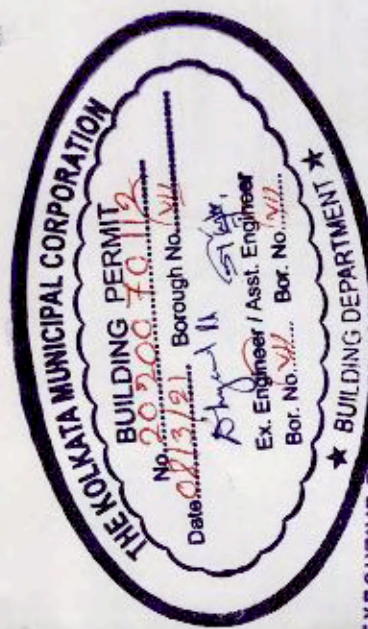 THE KOLKATA MUNICIPAL CORPORATION
BUILDING PERMIT
No. 2020070112
Date 08/3/21 Borough No. VII
Ex. Engineer / Asst. Engineer
Bor. No. VII Bor. No. VII
★ BUILDING DEPARTMENT ★